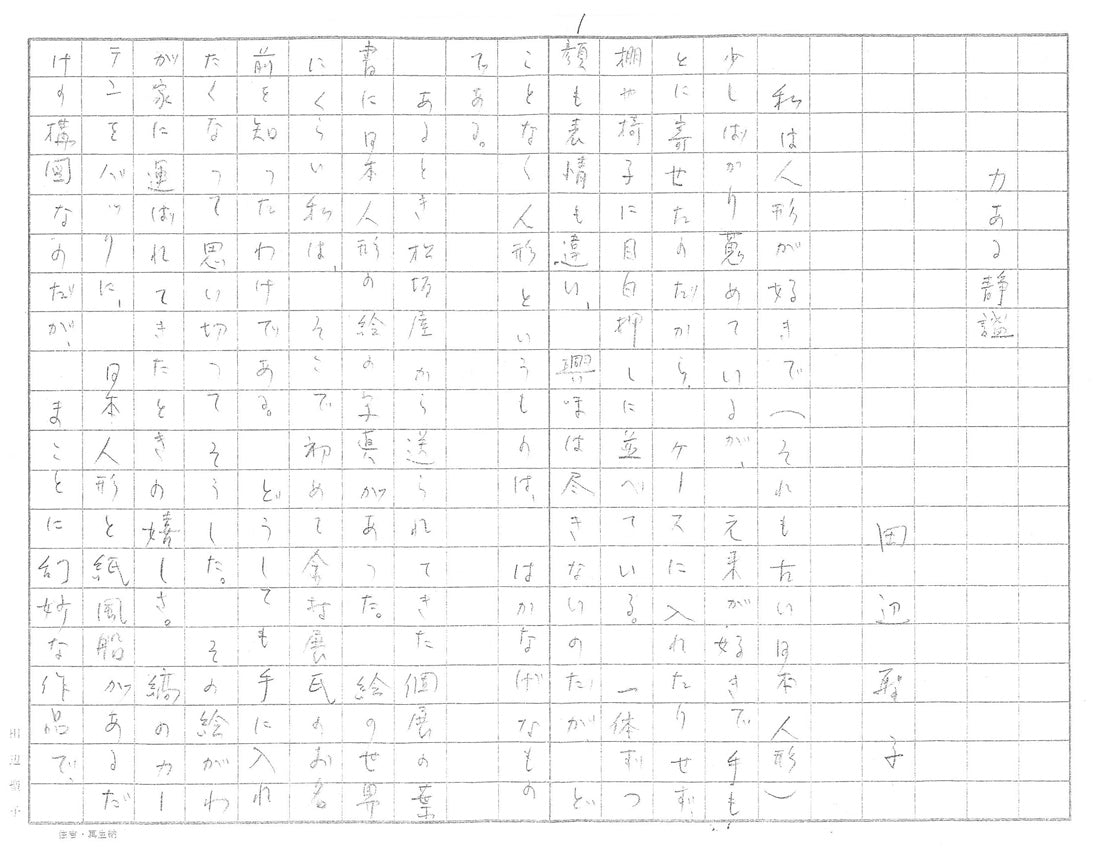 1
力ある静謐
田辺聖子
私は人形が好きで(それも古い日本人形)
少しばかり蒐めているが、元来が好きで手も
とに寄せたのだから、ケースに入れたりせず、
棚や椅子に目白押しに並べている。一体ずつ
顔も表情も違い、興味は尽きないのだが、ど
ことなく人形というものは、はかなげなもの
である。
あるとき松坂屋から送られてきた個展の葉
書に日本人形の絵の写真があった。絵の世界
にくらい私は、そこで初めて余村展氏のお名
前を知ったわけである。どうしても手に入れ
たくなって思い切ってそうした。その絵がわ
が家に運ばれてきたときの嬉しさ。縞のカー
テンをバックに、日本人形と紙風船があるだ
けの構図なのだが、まことに幻妙な作品で、
田辺聖子